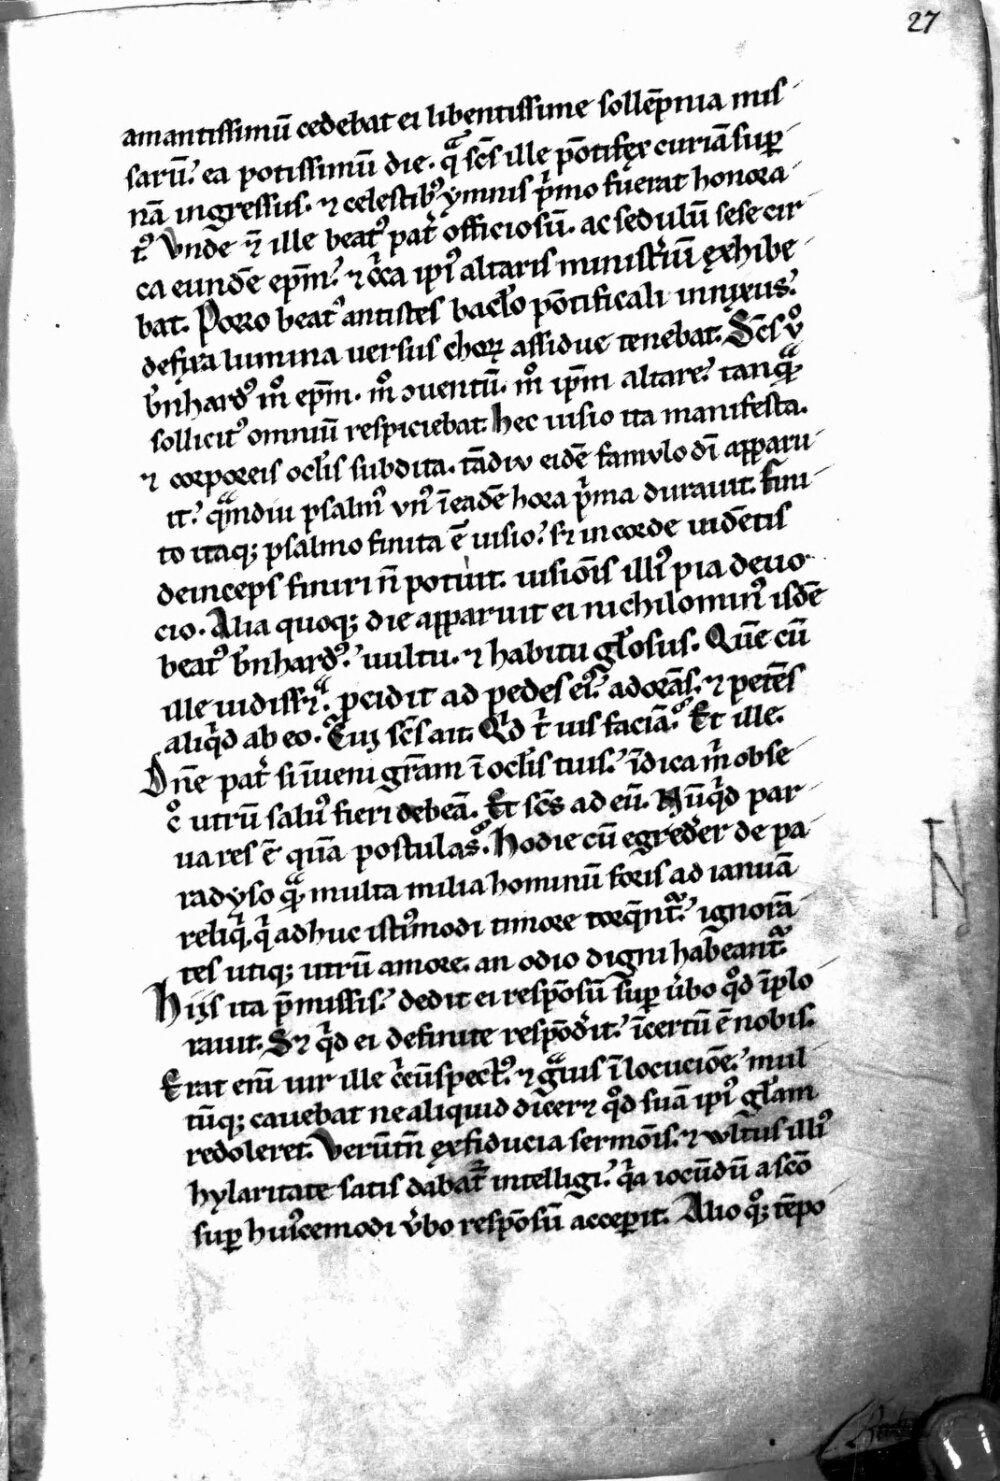 27
amantissimū cedebat ei libentissime sollēpnia mis
sarū. ea potissimū die. qᵃ scs̄ ille pōtifex curiā suꝑ
nā ingressus. ⁊ celestibꝰ ymnis pⁱmo fuerat honora
tꝰ Vnde ⁊ ille beatꝰ pat̄ officiosū. ac sedulū sese cir
ca eundē ep̄m. ⁊ cⁱca ipīꝰ altaris ministⁱiū exhibe
bat. Porro beatꝰ antistes bac̄lo pōtificali innixus.
defixa lumina versus chorꝝ assidue tenebat. Scs̄ vᵒ
b̄nhardꝰ mᵒ ep̄m. mᵒ ꝯuentū. mᵒ ip̄m altare. tanqᵃꝫ
sollicitꝰ omniū respiciebat. hec uisio ita manifesta.
⁊ corporeis oc̄lis subdita. tādiv eidē famvlo dī apparu
it. qᵃmdiu psalmꝰ vnꝰ ī eadē hora pⁱma durauit. fini
to itaqꝫ psalmo finita ē uisio. sꝫ in corde uidētis
deinceps finiri n̄ potuit. uisiōis illiꝰ pia deuo
cio. Alia quoqꝫ die apparuit ei nichilominꝰ isdē
beatꝰ b̄nhardꝰ. uultu. ⁊ habitu gl̄osus. Quē cū
ille uidissꝫ. ꝓcidit ad pedes eiꝰ. adorās. ⁊ petēs
aliqⁱd ab eo. Cui scs̄ ait. Qⁱd tⁱ uis faciā. Et ille.
Dn̄e pat̄ si īueni gr̄am ī oc̄lis tuis. īdica mⁱ obse
cᵒ utrū saluꝰ fieri debeā. Et scs̄ ad eū. Nūqⁱd par
ua res ē quā postulas. Hodie cū egreder̄ de pa
radyso qᵃꝫ multa milia hominū foris ad ianuā
reliqⁱ. qⁱ adhuc istiꝰmodi timore torqn̄tᵃ. ignorā
tes utiqꝫ utrū amore. an odio digni habeantᵃ.
Hijs ita p̄missis. dedit ei respōsū suꝑ ūbo qᵒd īplo
rauit. Sꝫ qⁱd ei definite respōdⁱit. īcertū ē nobis.
Erat enī uir ille cⁱcūspectꝰ. ⁊ gᵃuis ī locucióne. mul
tūqꝫ cauebat ne aliquid dicerꝫ qᵒd suā ipīꝰ gl̄am
redoleret. Verūtn̄ ex fiducia sermōis. ⁊ vultus illiꝰ
hylaritate satis dabatᵃ intelligi. qⁱa iocūdū a scō
suꝑ huiꝰcemodi ūbo respōsū acceperit. Alio qᵒqꝫ tēpo